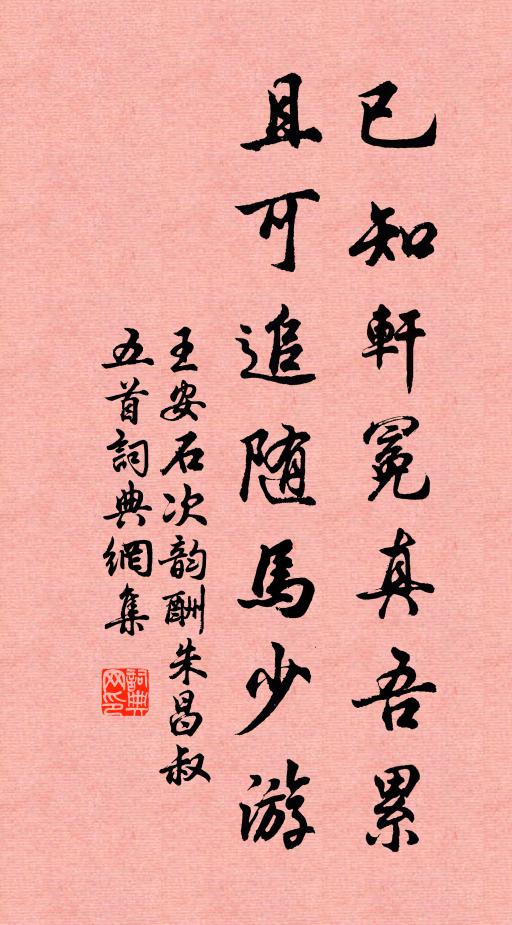 已知軒冕真吾累
且可追随馬少游
王安石次韵酬朱昌叔
五首詞典網集
詞典
网印